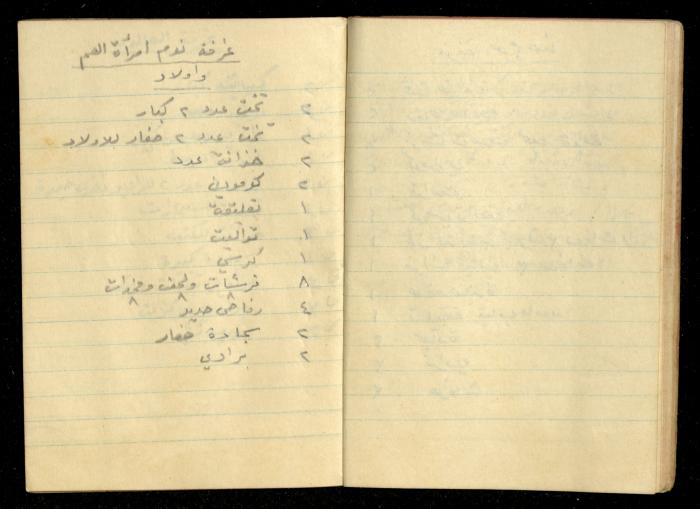 غرفة نوم امرأة العم
واولاد
٢ تخت عدد ٢ كبار
٢ تخت عدد ٢ صغار للاولاد
٢ خزانة عدد
٢ كومودين
١ تعليقة
١ تواليت
١ كرسي
٨ فرشات ولحف ومخدات
٤ حديد
٢ سجادة صغار
٢ برادي